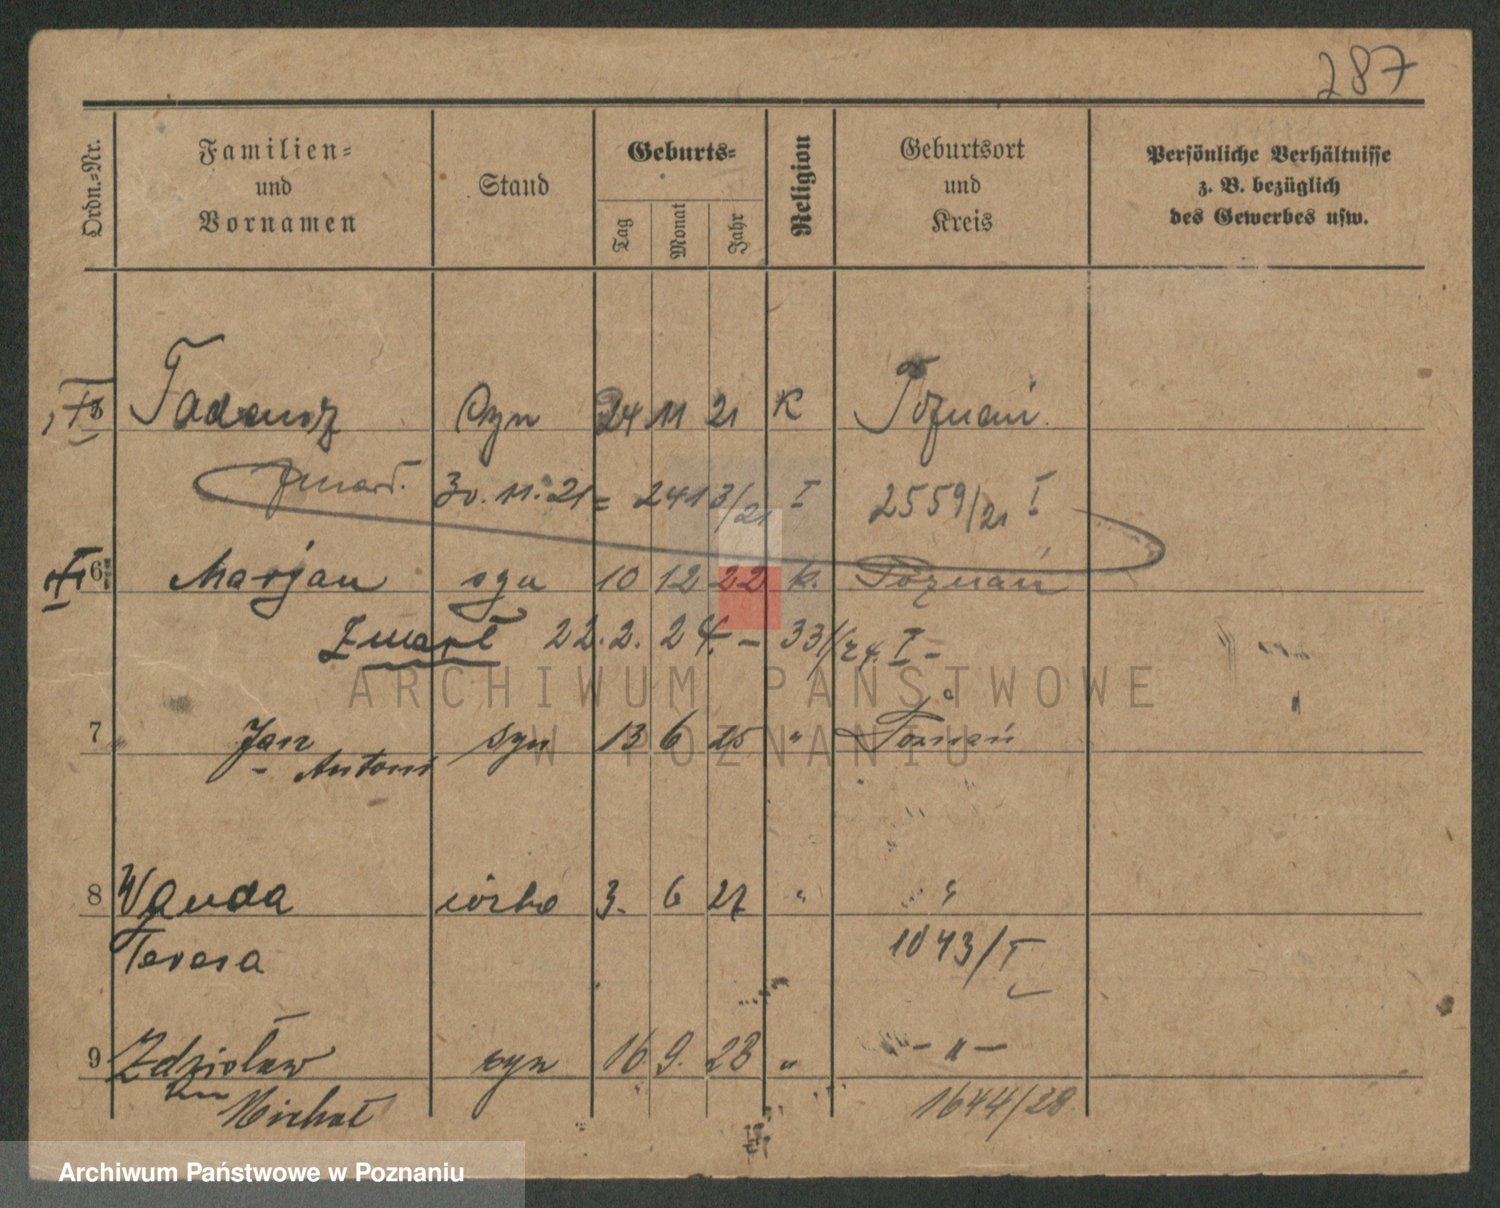 287
Ordn.-Nr.
Familien-
und
Vornamen
Stand
Geburts-
Tag
Monat
Jahr
Religion
Geburtsort
und
Kreis
Persönliche Verhältnisse
z. B. bezüglich
des Gewerbes usw.
Tadeusz syn 24 11 21 K Poznań
zmarł. 30.11.21 = 2413/21 I 2559/21 I
6 Marjan syn 10 12 22 k. Poznań
Zmarł 22.2.24. - 331/24. I -
ARCHIWUM PAŃSTWOWE
W POZNANIU
7 Jan syn 13 6 25 " Poznań
Antoni
8 Wanda córka 3. 6 27 " "
Teresa 1043/I
9 Zdzisław syn 16 9. 28 " - " -
Michał 1644/28
Archiwum Państwowe w Poznaniu